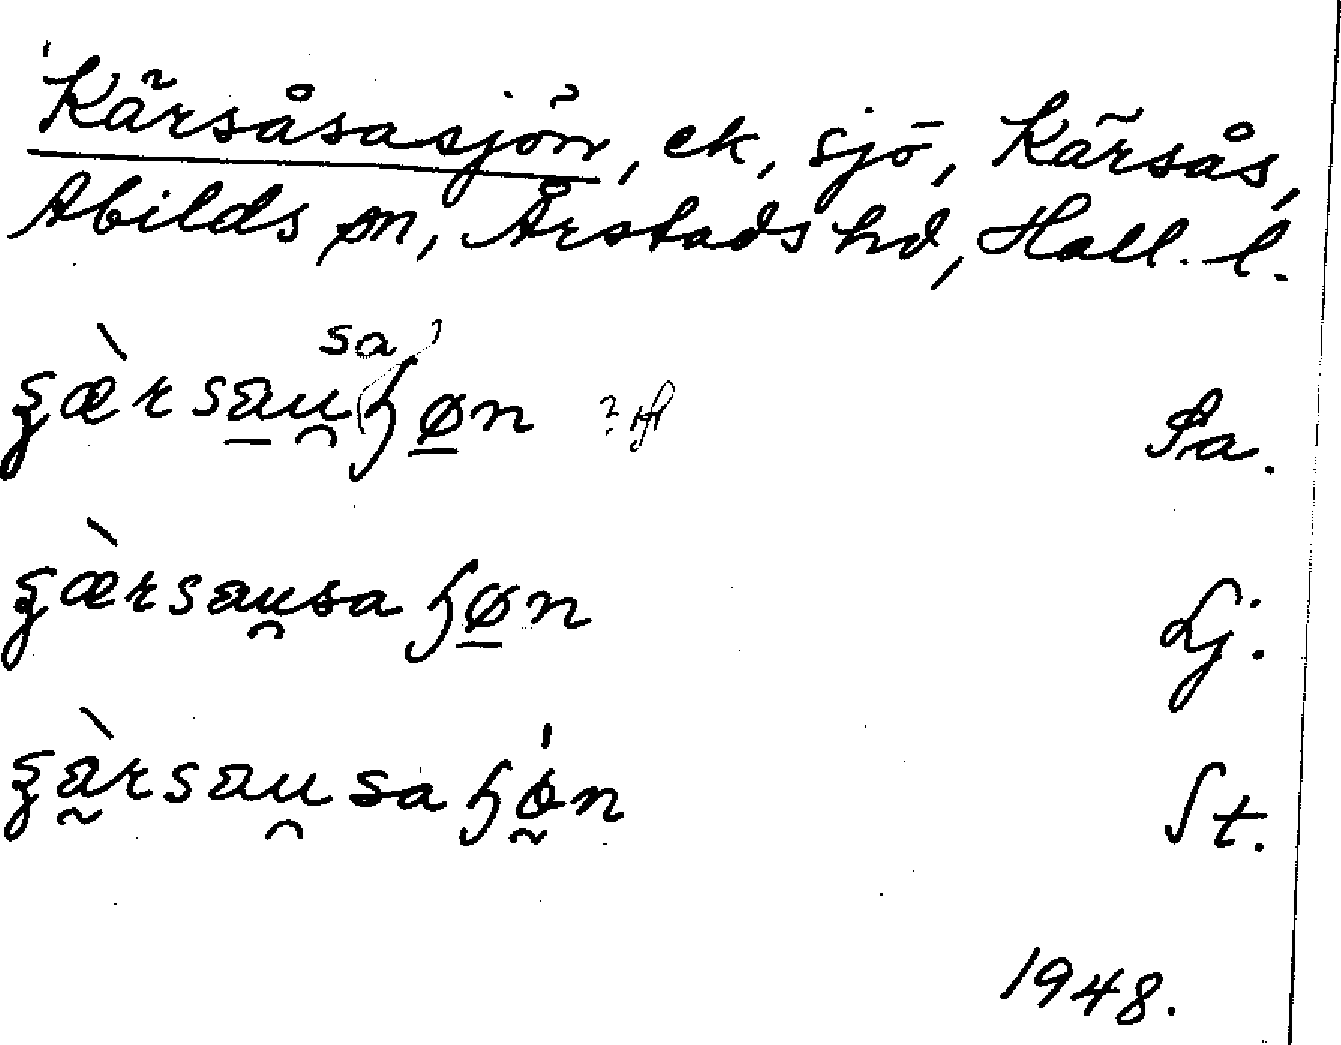 Kärsåsasjön, ek, sjö, Kärsås,
Abilds sn, Årstads hd, Hall. l.
sa
gærsau̯ɧøn Sa.
gærsau̯saɧøn Lj.
gàrsau̯saɧøn St.
1948.